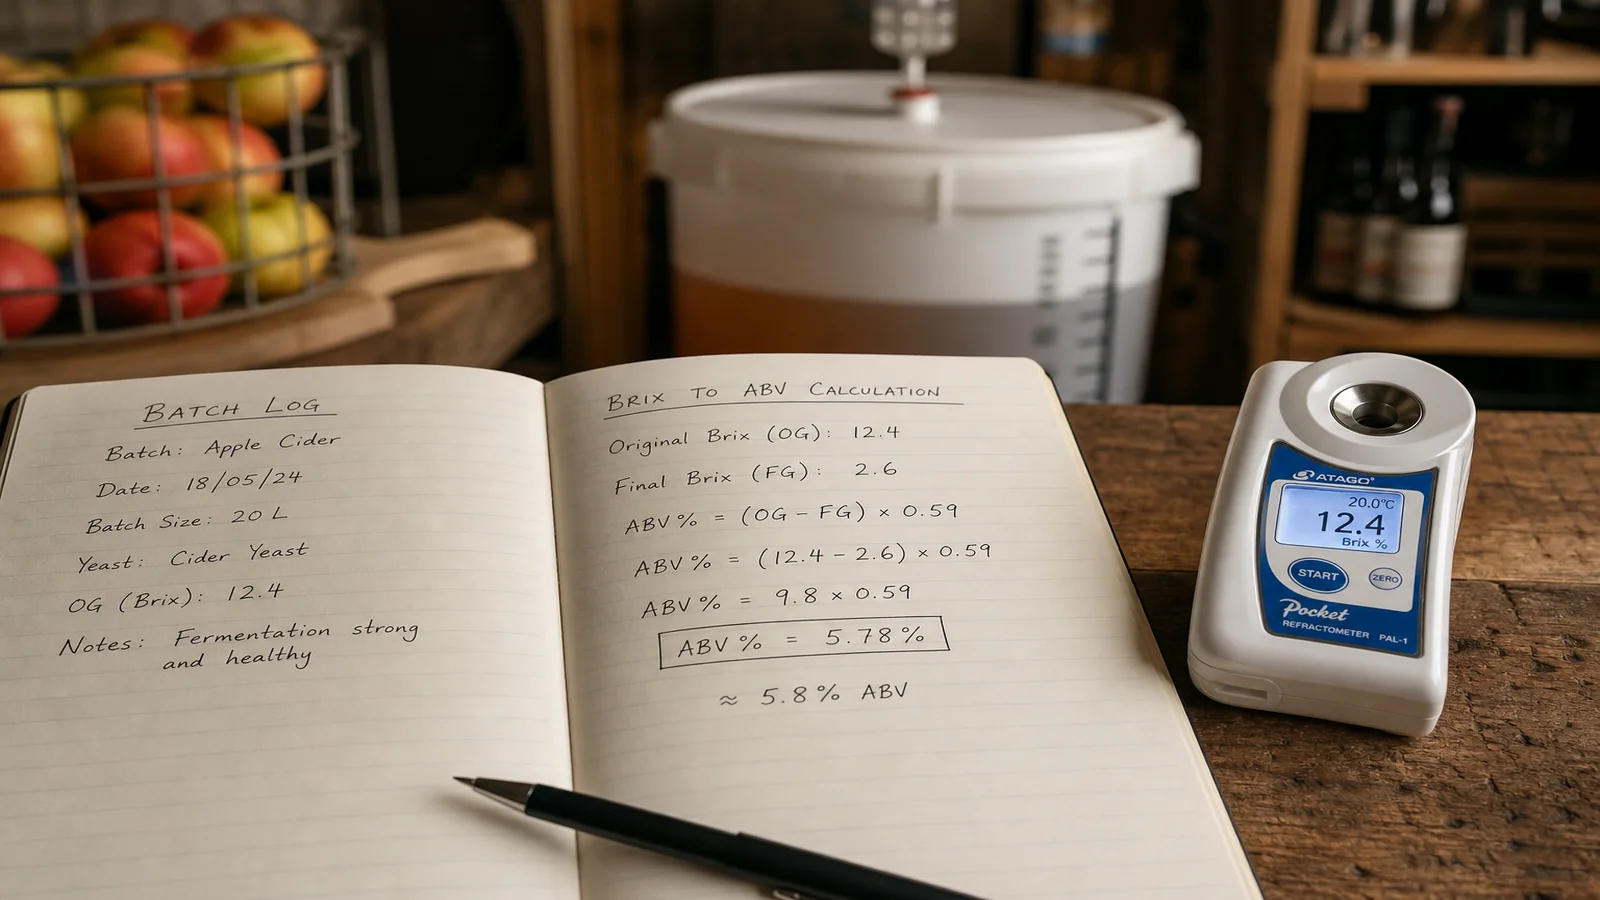 BATCH LOG
Batch: Apple Cider
Date: 18/05/24
Batch Size: 20 L
Yeast: Cider Yeast
OG (Brix): 12.4
Notes: Fermentation strong
and healthy
BRIX TO ABV CALCULATION
Original Brix (OG): 12.4
Final Brix (FG): 2.6
ABV% = (OG – FG) × 0.59
ABV% = (12.4 – 2.6) × 0.59
ABV% = 9.8 × 0.59
ABV% = 5.78%
≈ 5.8% ABV
ATAGO®
20.0°C
12.4
Brix %
START
ZERO
Pocket
REFRACTOMETER PAL-1